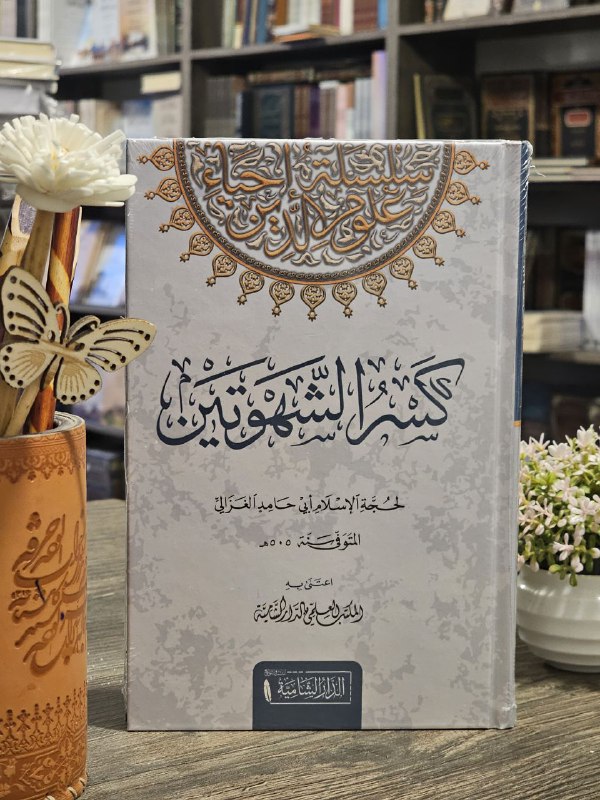 سلسلة إحياء
علوم الدين
كَسْرُ الشَّهْوَتَيْنِ
لحُجَّةِ الإِسْلَامِ أبي حَامِدٍ الغَزَالِيِّ
المتوفَّى سَنَة ٥٠٥هـ
اعتَنَى بِهِ
المكتب العِلمي بالدار الشَّاميَّة
الدَّارُ الشَّامِيَّة